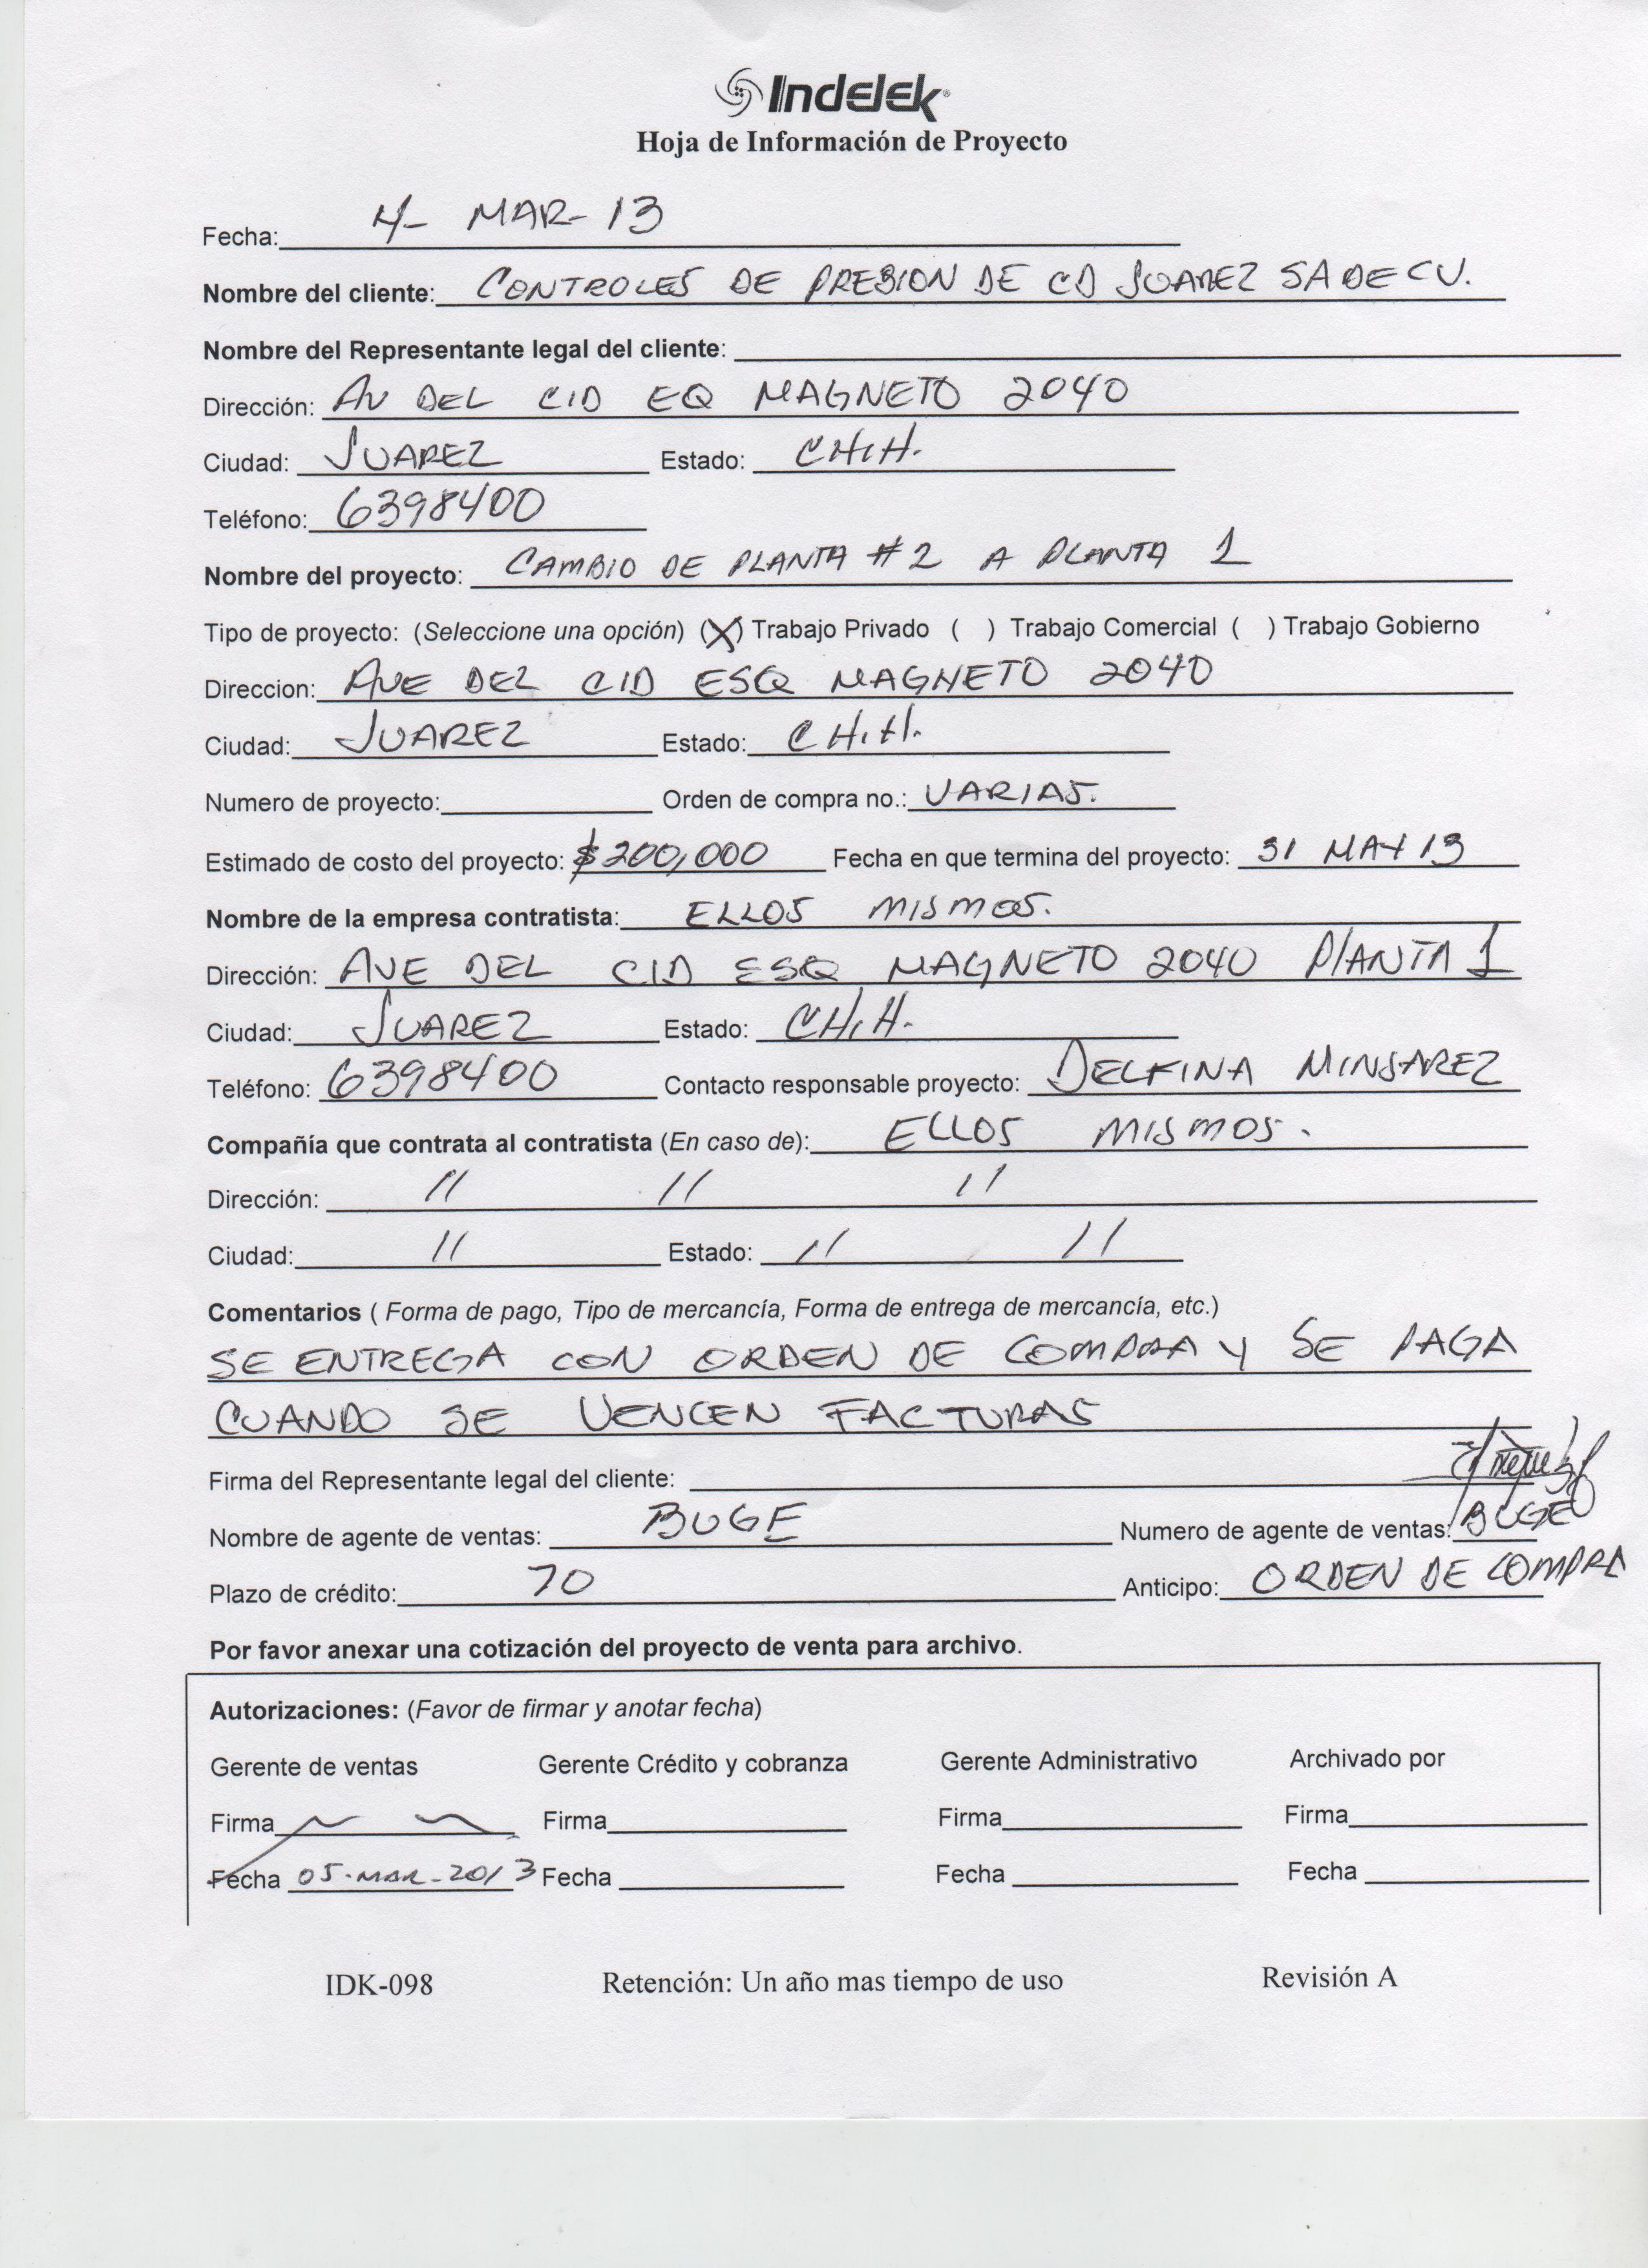 Indelek
Hoja de Información de Proyecto
Fecha: 4- MAR-13
Nombre del cliente: CONTROLES DE PRESION DE CD JUAREZ SA DE CV.
Nombre del Representante legal del cliente:
Dirección: AV DEL CID EQ MAGNETO 2040
Ciudad: JUAREZ Estado: CHIH.
Teléfono: 6398400
Nombre del proyecto: CAMBIO DE PLANTA #2 A PLANTA 1
Tipo de proyecto: (Seleccione una opción) (X) Trabajo Privado ( ) Trabajo Comercial ( ) Trabajo Gobierno
Direccion: AVE DEL CID ESQ MAGNETO 2040
Ciudad: JUAREZ Estado: CHIH.
Numero de proyecto: Orden de compra no.: VARIAS.
Estimado de costo del proyecto: $200,000 Fecha en que termina del proyecto: 31 MAY 13
Nombre de la empresa contratista: ELLOS MISMOS.
Dirección: AVE DEL CID ESQ MAGNETO 2040 PLANTA 1
Ciudad: JUAREZ Estado: CHIH.
Teléfono: 6398400 Contacto responsable proyecto: DELFINA MINJAREZ
Compañía que contrata al contratista (En caso de): ELLOS MISMOS.
Dirección: // // //
Ciudad: // Estado: // //
Comentarios ( Forma de pago, Tipo de mercancía, Forma de entrega de mercancía, etc.)
SE ENTREGA CON ORDEN DE COMPRA Y SE PAGA
CUANDO SE VENCEN FACTURAS
Firma del Representante legal del cliente:
Nombre de agente de ventas: BUGE Numero de agente de ventas: BUGE
Plazo de crédito: 70 Anticipo: ORDEN DE COMPRA
Por favor anexar una cotización del proyecto de venta para archivo.
Autorizaciones: (Favor de firmar y anotar fecha)
Gerente de ventas Gerente Crédito y cobranza Gerente Administrativo Archivado por
Firma Firma Firma Firma
Fecha 05-MAR-2013 Fecha Fecha Fecha
IDK-098 Retención: Un año mas tiempo de uso Revisión A